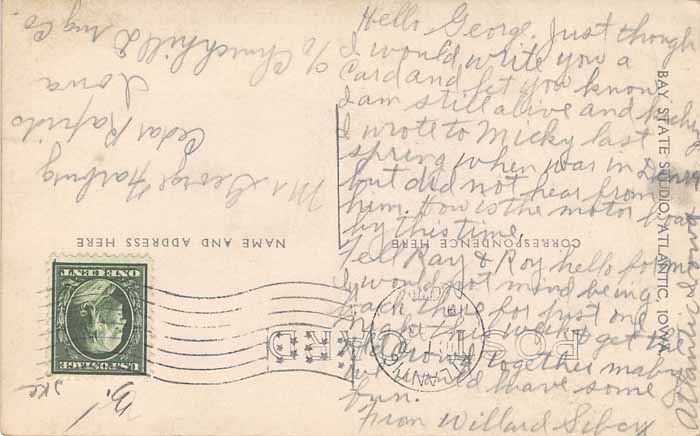 Hello George. Just though
I would write you a
Card and let you know
I am still alive and
I wrote to Micky last
spring when was in
but did not hear from
him. How is the motor
by this time.
Tell Ray & Roy hello for me
I would not mind being
back there for just one
night this week to get the
together maby
we would have some
fun.
From Willard
Mr George
Cedar Rapids
Iowa
c/o Churchill
Co.
NAME AND ADDRESS HERE
CORRESPONDENCE HERE
POST CARD
BAY STATE STUDIO, ATLANTIC, IOWA
ONE CENT
U.S. POSTAGE
ATLANTIC